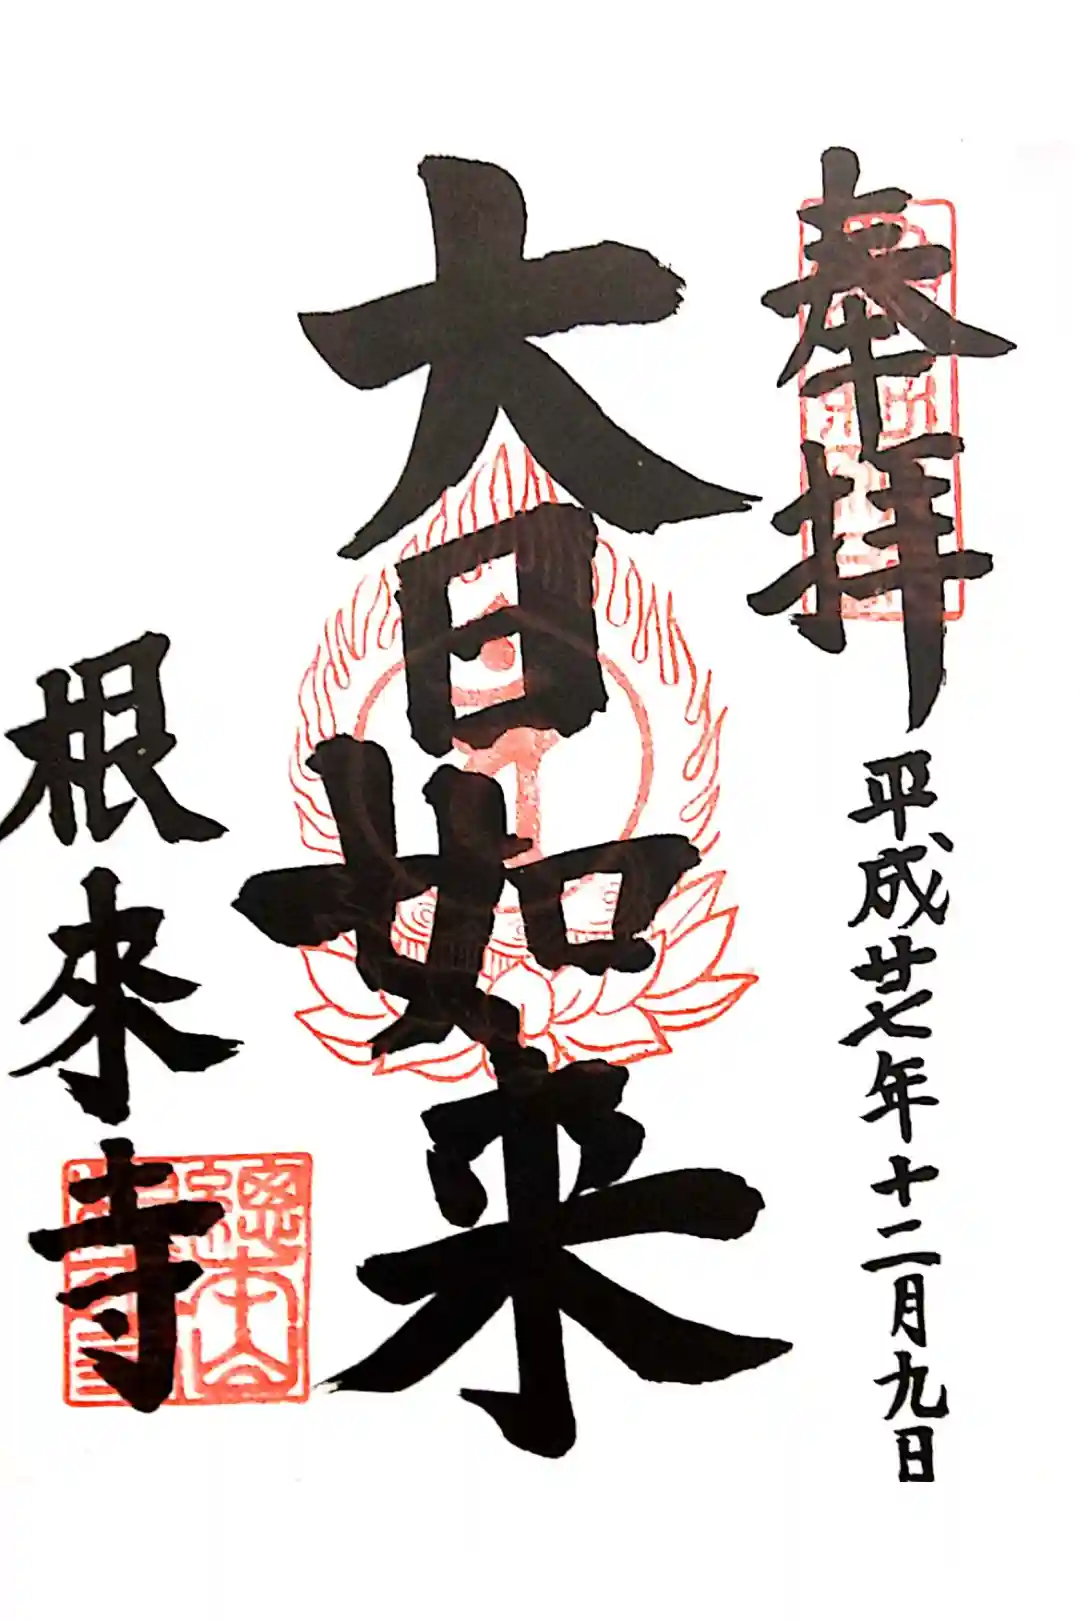 奉拝
平成廿七年十二月九日
大日如来
根來寺
總本山